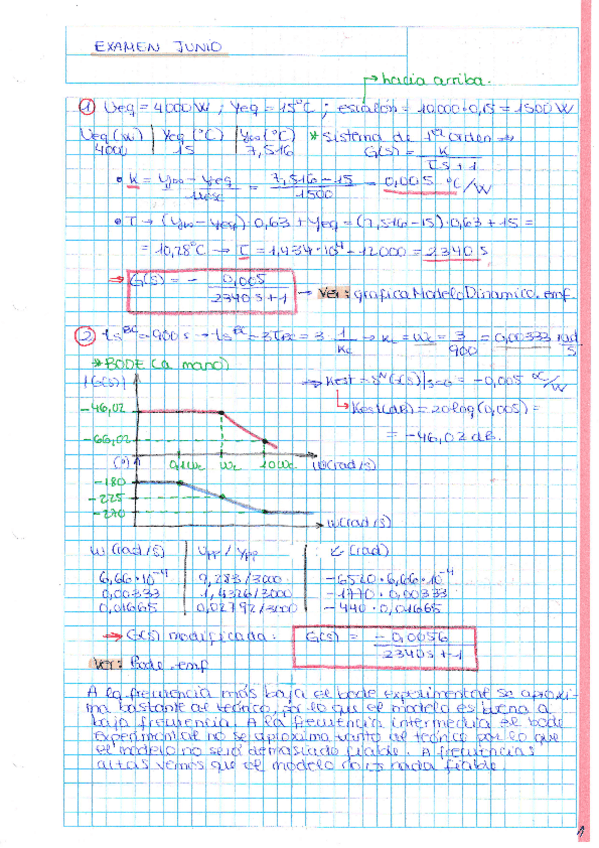 EXAMEN JUNIO
→ hacia arriba.
① Ueq = 4000W ; Yeq = 15°C ; escalón = 10000·0,15 = 1500 W
Ueq (W) | Yeq (°C) | Y∞ (°C) * Sistema de 1er orden →
4000 | 15 | 7,516 G(s) = K / (τs+1)
• K = (Y∞ − Yeq) / Uesc = (7,516 − 15) / 1500 = 0,005 °C/W
• τ → (Y∞ − Yeq)·0,63 + Yeq = (7,516 − 15)·0,63 + 15 =
= 10,28°C → τ = 1,434·10⁴ − 12000 = 2340 s
⇒ G(s) = − 0,005 / (2340s+1) → Ver: graficaModeloDinamico.emf
② ts^BC = 900 s → ts^BC = 3τBC = 3 · 1/Kc → Kc = ωc = 3/900 = 0,00333 rad/s
* BODE (a mano)
|G(s)|
→ Kest = s^N G(s)|s=0 = −0,005 °C/W
−46,02
↳ Kest(dB) = 20log(0,005) =
−66,02
= −46,02 dB.
(°) 0,1ωc ωc 10ωc ω(rad/s)
−180
−225
−270
ω(rad/s)
ω (rad/s) | Upp / Ypp | (rad)
6,66·10⁻⁴ | 9,283/3000 | −6520·6,66·10⁻⁴
0,00333 | 1,4326/3000 | −1770·0,00333
0,01665 | 0,02792/3000 | −440·0,01665
→ G(s) modificada: G(s) = −0,0056 / (2340s+1)
Ver: Bode.emf
A la frecuencia más baja el bode experimental se aproxi-
ma bastante al teórico, por lo que el modelo es bueno a
baja frecuencia. A la frecuencia intermedia el bode
experimental no se aproxima tanto al teórico por lo que
el modelo no será demasiado fiable. A frecuencias
altas vemos que el modelo no es nada fiable.
1